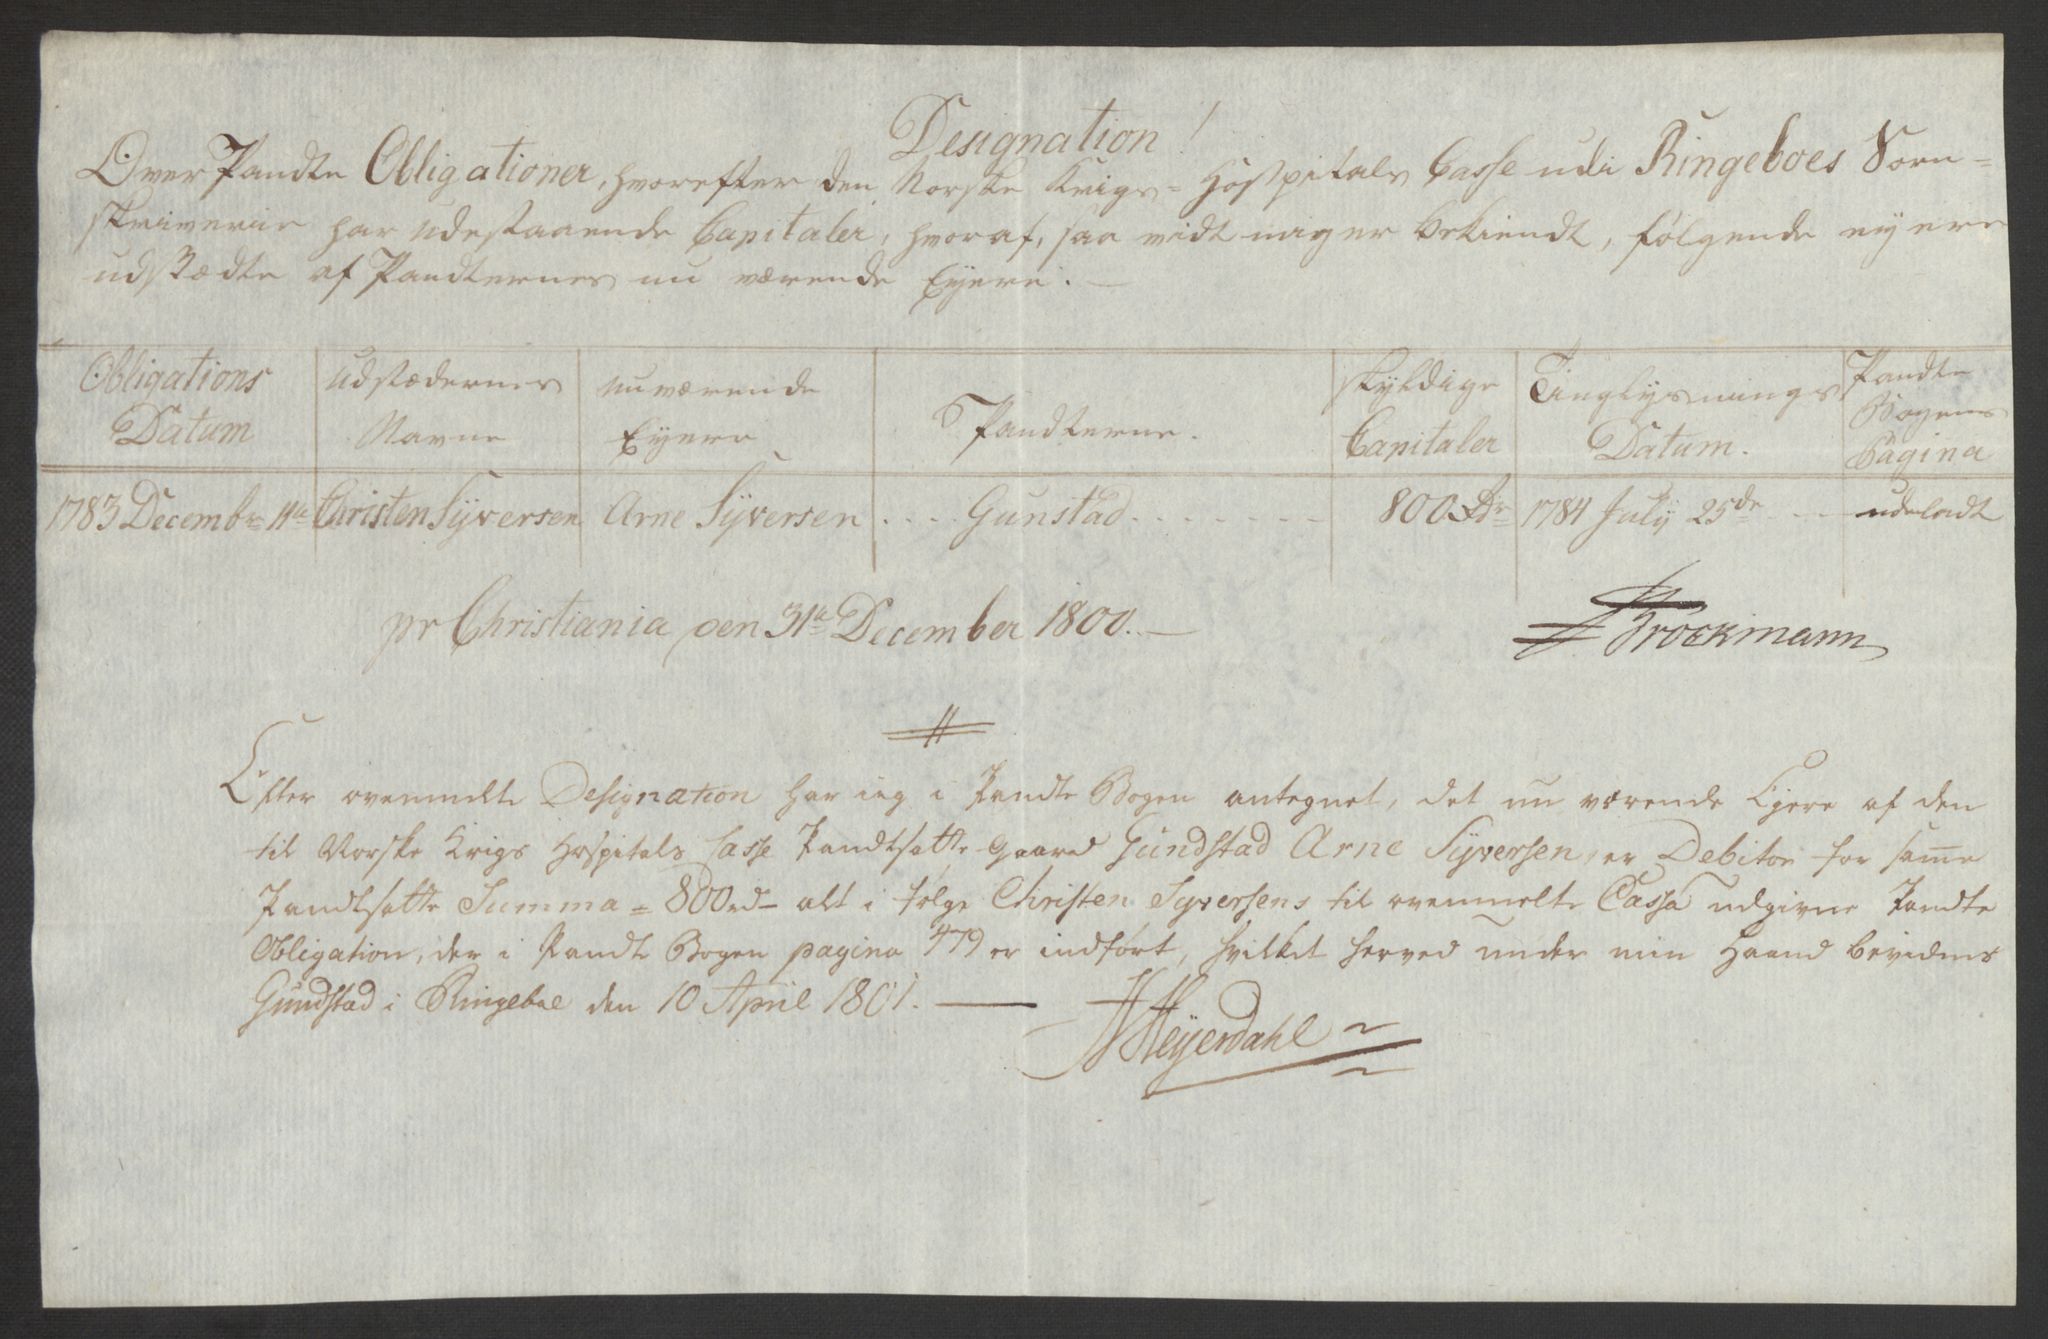 Designation!
Over Pandte Obligationer, hvorefter den Norske Krigs- Hospitals Casse udi Ringeboes Sorn-
skriverie har udestaaende Capitaler, hvoraf, saa vidt mig er bekiendt, følgende ey ere
udstædte af Pandternes nu værende Eyere. —
Obligations Datum | Udstædernes Navne | Nuværende Eyere | Pandterne. | skyldige Capitaler | Tinglysnings Datum. | Pandte Bogens Pagina
1783 Decembr 11te | Christen Syversen | Arne Syversen | Gunstad | 800 Rdr | 1784 July 25de | udeladt
pr Christiania den 31te December 1800. —
Brockmann
Efter ovenmelte Designation har ieg i Pandte Bogen antegnet, det nu værende Ejere af den
til Norske Krigs Hospitals Casse Pandtsatte Gaard Gundstad Arne Syversen, er Debitor for samme
Pandtsatte Summa = 800 rd – alt i følge Christen Syversens til ovenmelte Cassa udgivne Pandte
Obligation, der i Pandte Bogen pagina 479 er indført, hvilket herved under min Haand bevidnes
Gundstad i Ringeboe den 10 April 1801. —
Heyerdahl